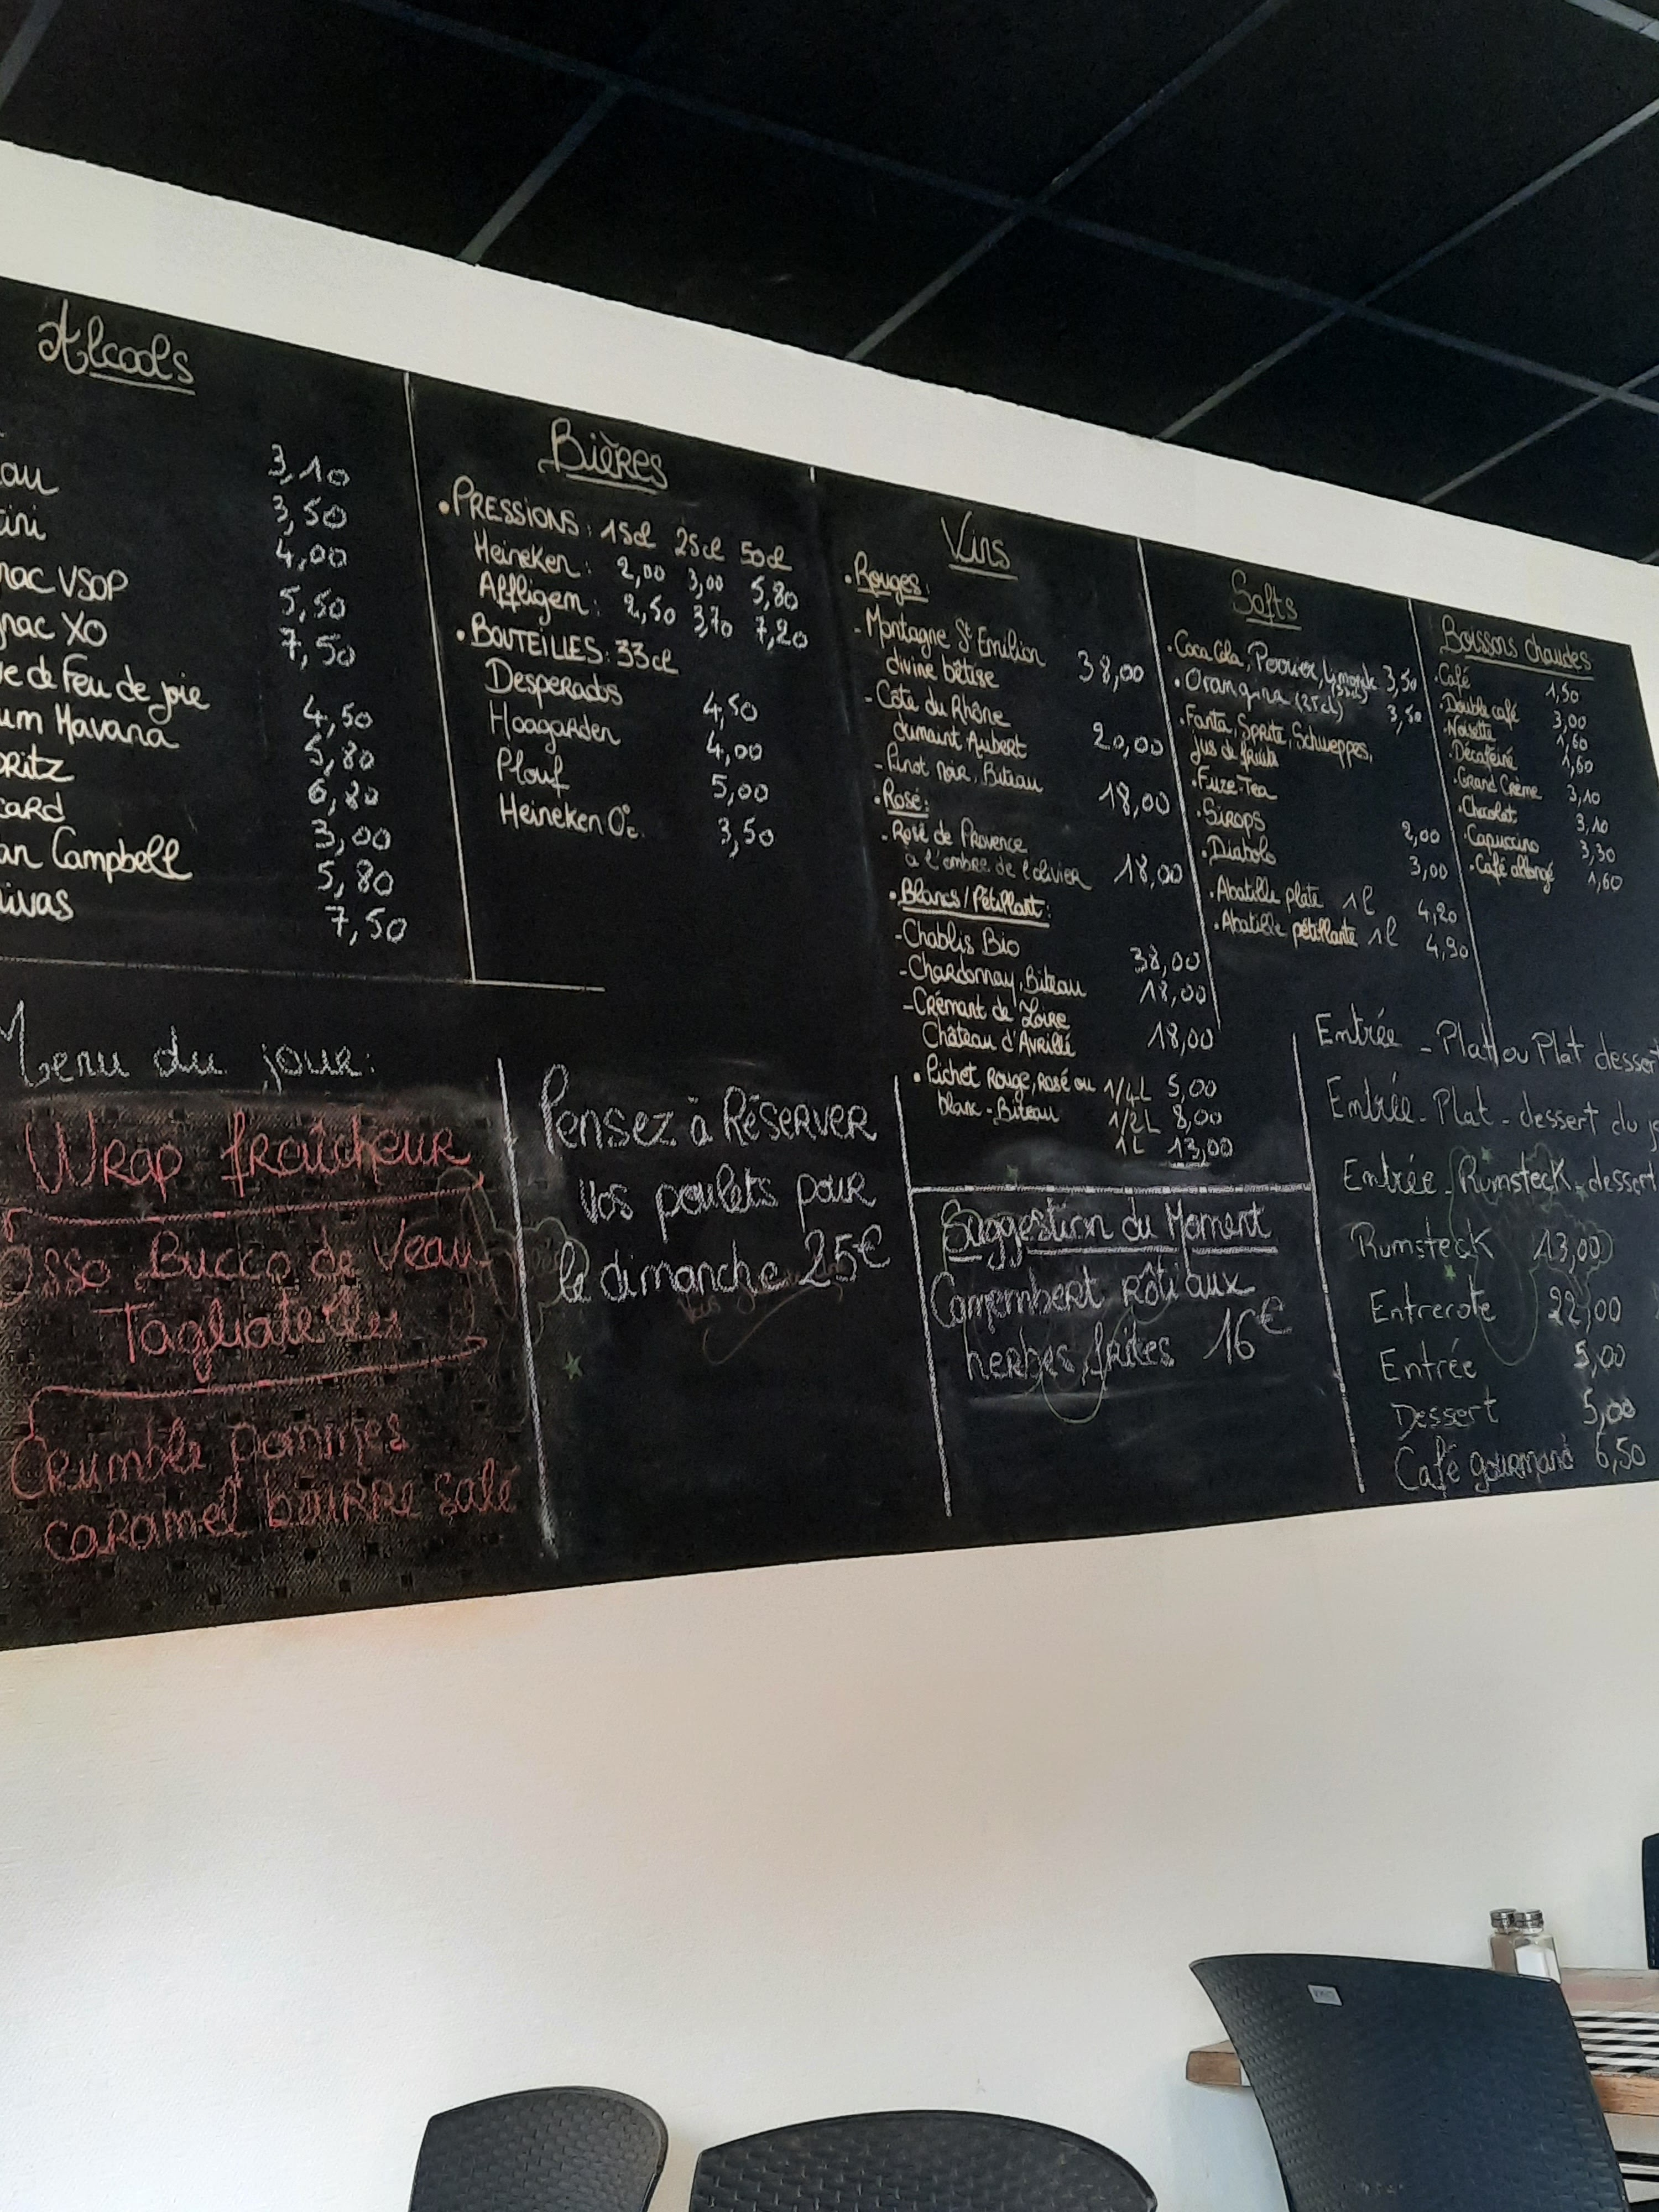 Alcools
3,10
3,50
4,00
VSOP 5,50
XO 7,50
de Feu de joie 4,50
Havana 5,80
6,80
3,00
Campbell 5,80
7,50
Bières
• PRESSIONS: 15cl 25cl 50cl
Heineken: 2,00 3,00 5,80
Affligem: 2,50 3,70 7,20
• BOUTEILLES: 33cl
Desperados 4,50
Hoagarden 4,00
Plouf 5,00
Heineken 0°c. 3,50
Vins
• Rouges:
- Montagne St Emilion
divine bêtise 38,00
- Côte du Rhône
Aubert 20,00
- Pinot Noir, Biteau 18,00
• Rosé:
- Rosé de Provence
à l'ombre de l'olivier 18,00
• Blancs/Pétillant:
- Chablis Bio 38,00
- Chardonnay, Biteau 18,00
- Crémant de Loire
Château d'Avrillé 18,00
• Pichet Rouge, rosé ou 1/4L 5,00
blanc - Biteau 1/2L 8,00
1L 13,00
Softs
• Coca Cola, Perrier, limonade (33cl) 3,50
• Orangina (25cl) 3,50
• Fanta, Sprite, Schweppes,
jus de fruits
• Fuze-Tea
• Sirops 2,00
• Diabolo 3,00
• Abatille plate 1l 4,20
• Abatille pétillante 1l 4,90
Boissons chaudes
• Café 1,50
• Double café 3,00
• Noisette 1,60
• Décaféiné 1,60
• Grand Crème 3,10
• Chocolat 3,10
• Capuccino 3,30
• Café allongé 1,60
Menu du jour:
Wrap fraîcheur
Osso Bucco de Veau
Tagliatelles
Crumble pommes
caramel beurre salé
Pensez à Réserver
vos poulets pour
le dimanche 25€
Suggestion du Moment
Camembert rôti aux
herbes, frites 16€
Entrée - Plat ou Plat dessert
Entrée - Plat - dessert du
Entrée - Rumsteck - dessert
Rumsteck 13,00
Entrecote 22,00
Entrée 5,00
Dessert 5,00
Café gourmand 6,50